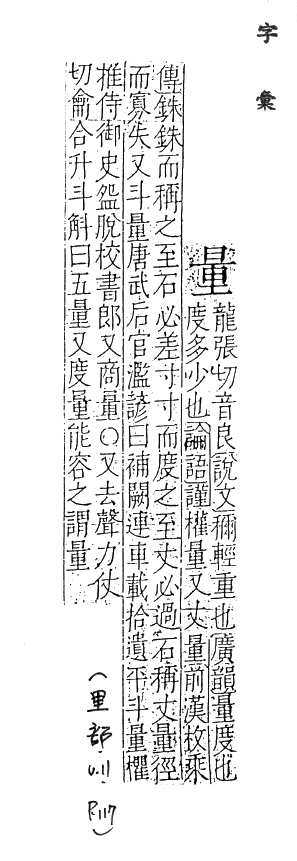 字彙
量
龍張切音良說文稱輕重也廣韻量度也
度多少也論語謹權量又丈量前漢枚乘
傳銖銖而稱之至石必差寸寸而度之至丈必過石稱丈量徑
而寡失又斗量唐武后官濫諺曰補闕連車載拾遺平斗量欋
推侍御史盌脫校書郎又商量〇又去聲力仗
切龠合升斗斛曰五量又度量能容之謂量
(里部 P.117)